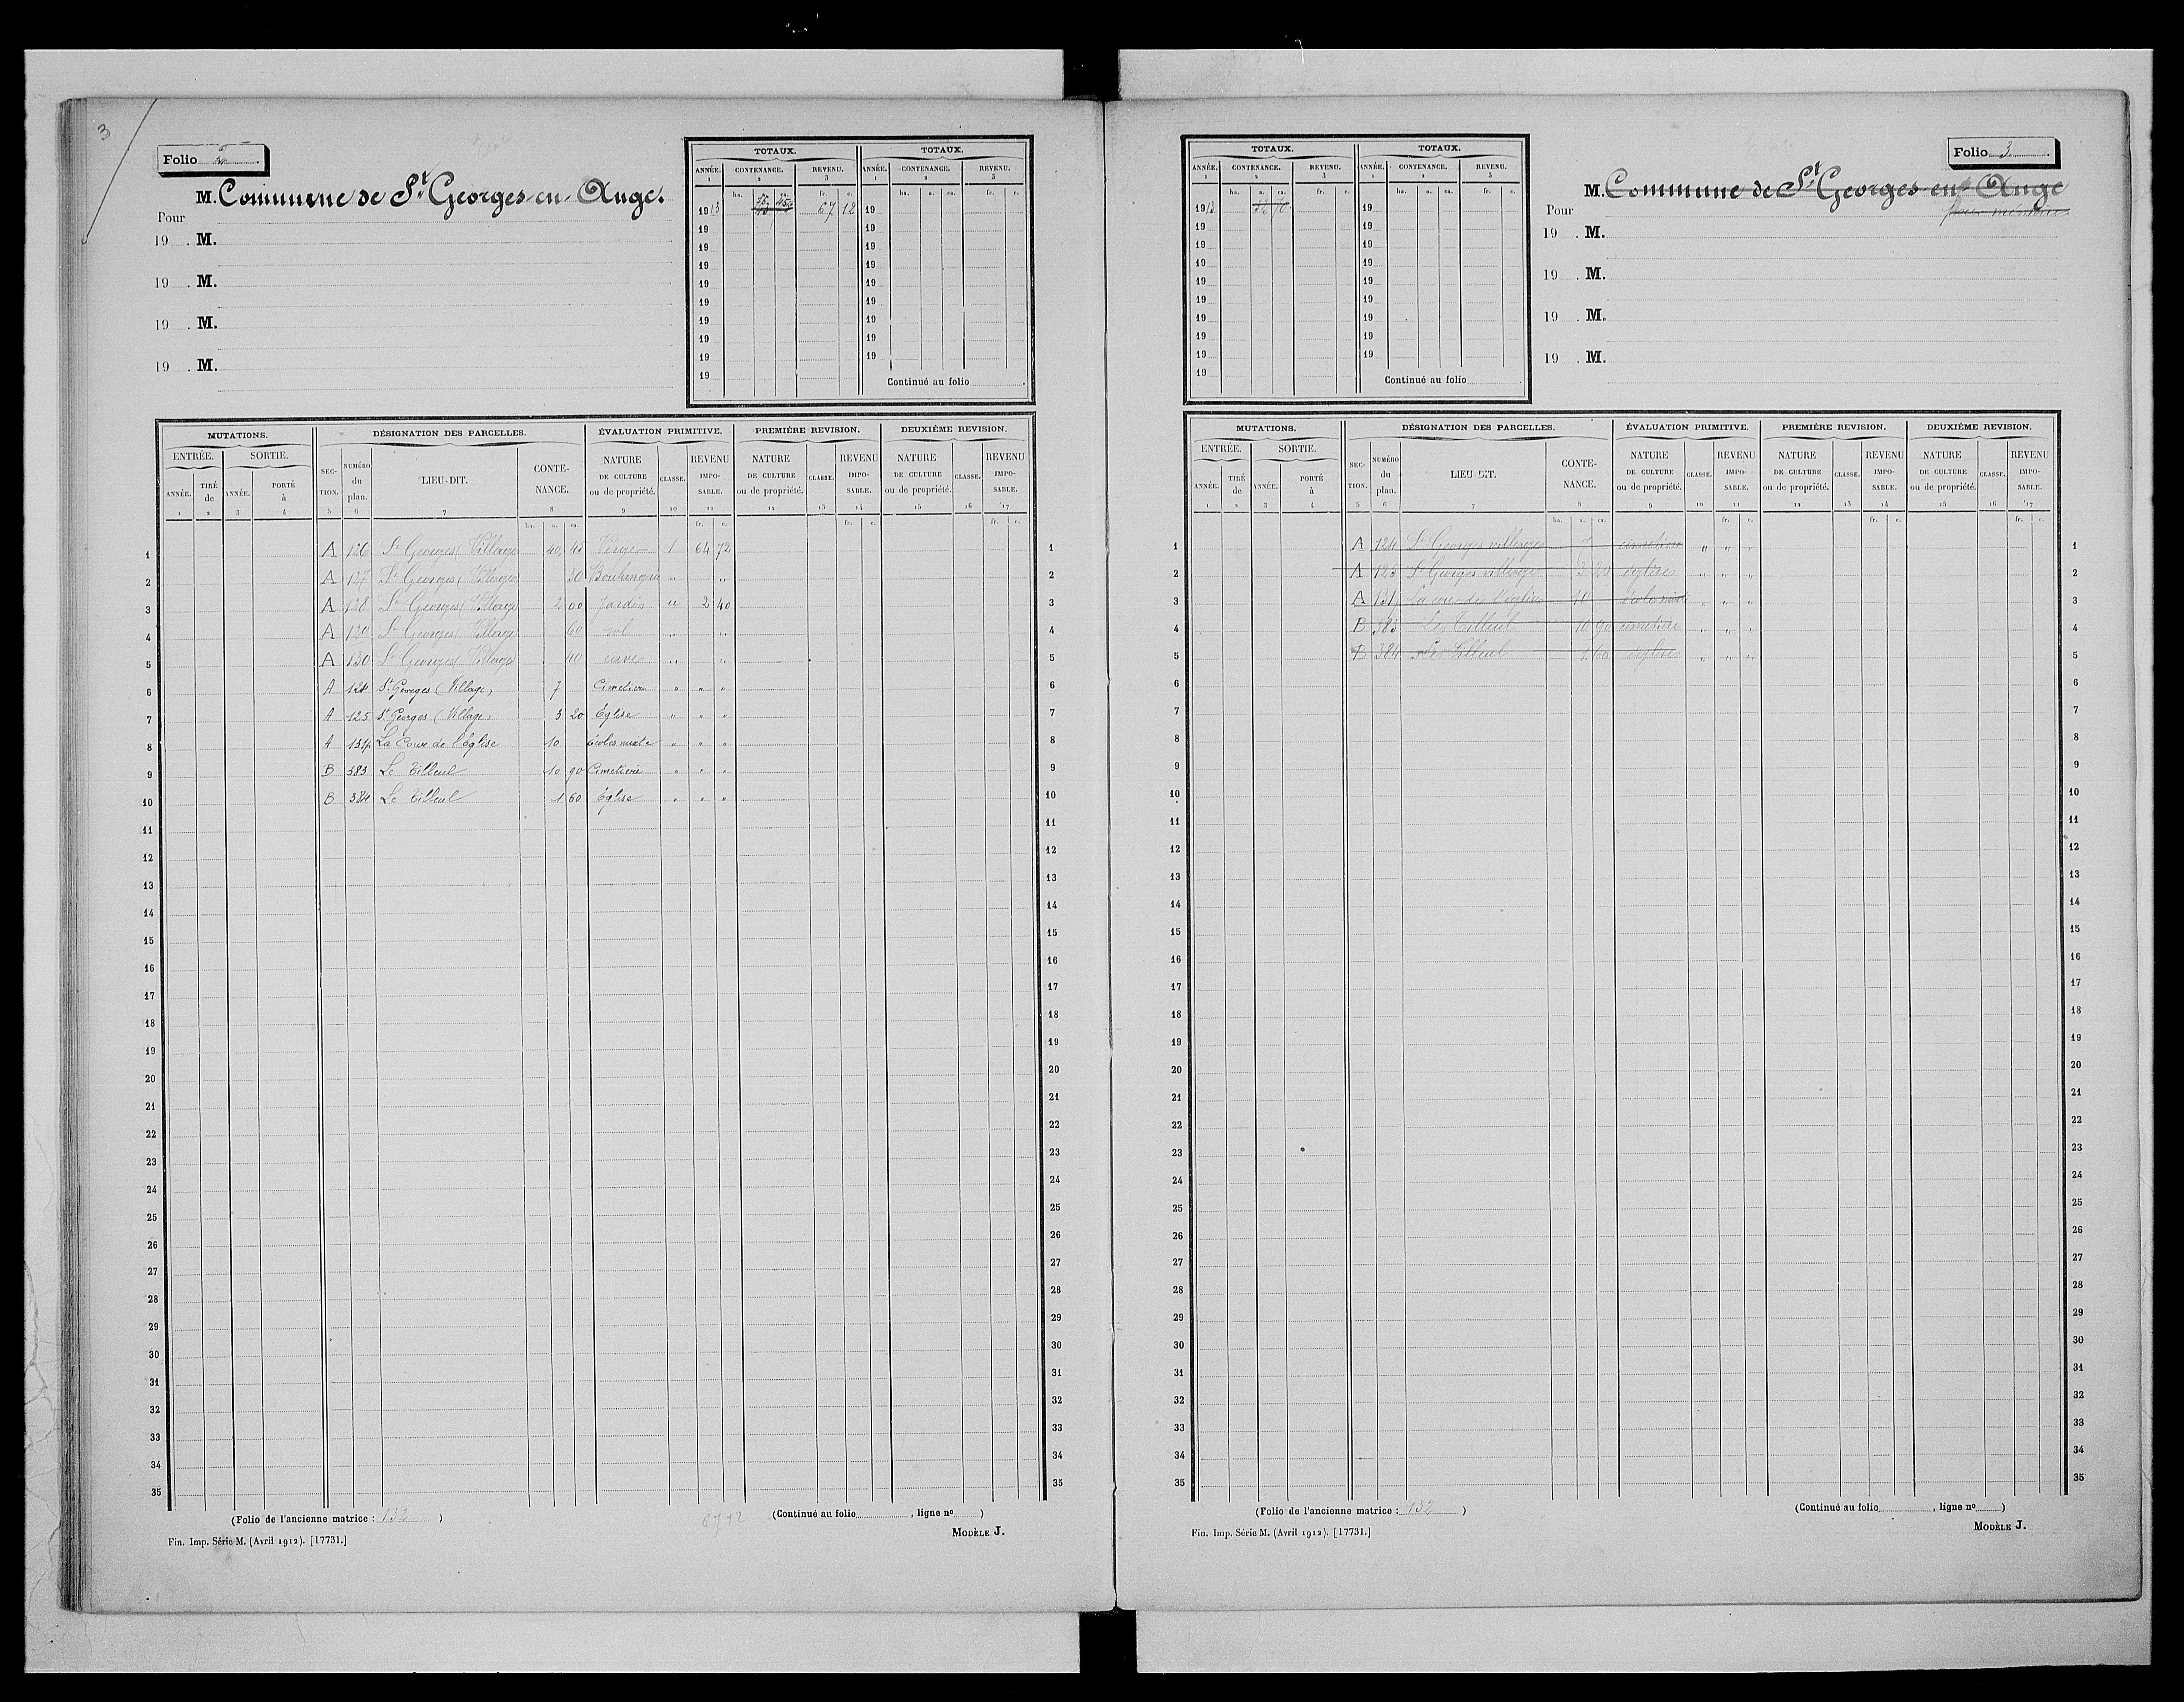 3
Folio 2
M. Commune de St Georges-en-Auge.
Pour
19 . M.
19 . M.
19 . M.
19 . M.
TOTAUX. TOTAUX.
ANNÉE. CONTENANCE. REVENU. ANNÉE. CONTENANCE. REVENU.
1 2 3 1 2 3
ha. a. ca. fr. c. ha. a. ca. fr. c.
1913 67 12 19
19 19
19 19
19 19
19 19
19 19
19 19
19 19
19 19
19 Continué au folio
MUTATIONS. DÉSIGNATION DES PARCELLES. ÉVALUATION PRIMITIVE. PREMIÈRE REVISION. DEUXIÈME REVISION.
ENTRÉE. SORTIE. SECTION. NUMÉRO du plan. LIEU-DIT. CONTENANCE. NATURE DE CULTURE ou de propriété. CLASSE. REVENU IMPOSABLE. NATURE DE CULTURE ou de propriété. CLASSE. REVENU IMPOSABLE. NATURE DE CULTURE ou de propriété. CLASSE. REVENU IMPOSABLE.
ANNÉE. TIRÉ de ANNÉE. PORTÉ à
1 2 3 4 5 6 7 8 9 10 11 12 13 14 15 16 17
ha. a. ca. fr. c. fr. c. fr. c.
1 A 126 St Georges (Village) 40 45 Verger 1 64 72 1
2 A 127 St Georges (Village) 30 " " 2
3 A 128 St Georges (Village) 2 00 Jardin u 2 40 3
4 A 129 St Georges (Village) 60 sol " " 4
5 A 130 St Georges (Village) 40 cave " " 5
6 A 124 St Georges (Village) 7 Cimetière " " " 6
7 A 125 St Georges (Village) 3 20 Église " " " 7
8 A 131p La Cour de l'Église 10 école mixte " " " 8
9 B 383 Le Tilleul 10 90 Cimetière " " " 9
10 B 384 Le Tilleul 1 60 Église " " " 10
11 11
12 12
13 13
14 14
15 15
16 16
17 17
18 18
19 19
20 20
21 21
22 22
23 23
24 24
25 25
26 26
27 27
28 28
29 29
30 30
31 31
32 32
33 33
34 34
35 35
(Folio de l'ancienne matrice : 132 ) 6712 (Continué au folio , ligne nº )
Fin. Imp. Série M. (Avril 1912). [17731.] MODÈLE J.
TOTAUX. TOTAUX.
ANNÉE. CONTENANCE. REVENU. ANNÉE. CONTENANCE. REVENU.
1 2 3 1 2 3
ha. a. ca. fr. c. ha. a. ca. fr. c.
1913 32 70 19
19 19
19 19
19 19
19 19
19 19
19 19
19 19
19 19
19 Continué au folio
Folio 3
M. Commune de St Georges-en-Auge
Pour pour mémoire
19 . M.
19 . M.
19 . M.
19 . M.
MUTATIONS. DÉSIGNATION DES PARCELLES. ÉVALUATION PRIMITIVE. PREMIÈRE REVISION. DEUXIÈME REVISION.
ENTRÉE. SORTIE. SECTION. NUMÉRO du plan. LIEU-DIT. CONTENANCE. NATURE DE CULTURE ou de propriété. CLASSE. REVENU IMPOSABLE. NATURE DE CULTURE ou de propriété. CLASSE. REVENU IMPOSABLE. NATURE DE CULTURE ou de propriété. CLASSE. REVENU IMPOSABLE.
ANNÉE. TIRÉ de ANNÉE. PORTÉ à
1 2 3 4 5 6 7 8 9 10 11 12 13 14 15 16 17
ha. a. ca. fr. c. fr. c. fr. c.
1 A 124 St Georges village 7 cimetière " " " 1
2 A 125 St Georges village 3 20 église " " " 2
3 A 131p La cour de l'église 10 école mixte " " " 3
4 B 383 Le Tilleul 10 90 cimetière " " " 4
5 B 384 Le Tilleul 1 60 église " " " 5
6 6
7 7
8 8
9 9
10 10
11 11
12 12
13 13
14 14
15 15
16 16
17 17
18 18
19 19
20 20
21 21
22 22
23 23
24 24
25 25
26 26
27 27
28 28
29 29
30 30
31 31
32 32
33 33
34 34
35 35
(Folio de l'ancienne matrice : 132 ) (Continué au folio , ligne nº )
Fin. Imp. Série M. (Avril 1912). [17731.] MODÈLE J.